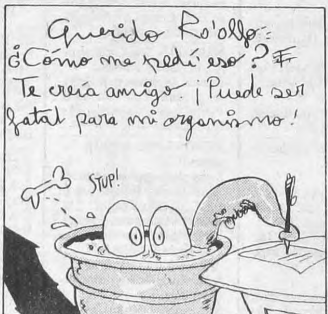 Querido Ro'ollo:
¿Cómo me pedí eso?
Te creía amigo. ¡Puede ser
fatal para mi organismo!
STUP!